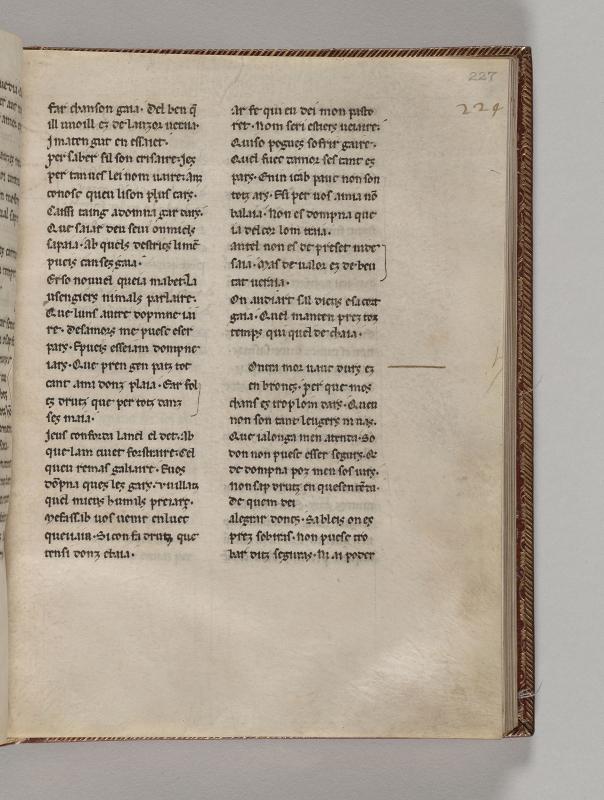 227
224
far chanson gaia. Del ben q̄
ill uuoill ez de lauzor ueraia.
j maten gut en essaiet.
per saber sil son crisaire. jez
per tan ues lei nom uaire. anz
conosc queu lison plus carx.
Caissi taing adomna gar darx.
Que sa iat deu seui onmiels
sapaia. Ab quels destrics lime
pueis canseз gaia.
Er so nouuel queia mabet. La
usengiers nimals parlaire.
Que luns autre dopmne iai
re. Desamors me puese eser
parx. Epueis esseiam dompne
iarx. Que pren gen patz tot
cant ami donz plaia. Ear fol
ez drutz que per totz danz
sez maia.
jeus conforta lancl el det. Ab
que lam cuet foistraire. Cel
queu remas galiaire. Enes
dōpna ques lez garx.
quel mieus humils preiarx.
Mefassib uos uenir enluec
queu. Si con fa drutz que
tensi donz chaia.
Ar se qui eu dei mon pasto
ret. Nom seri estiers ueiaire.
Quiso pogues sofrir gaire.
Quel fuec damor ses cant ez
parx. Enin icab pauc non son
totz arx. Esi per uos ama nō
balaia. Non es dompna que
ia del cor lom traia.
autel non es de preset mde
saia. Mas de ualor ez de beu
tat ueraia.
On audiart sil dieus esacort
gaia. Quel manten prez toz
temps qui quel de chaia.
Ontra mor uauc durx ez
en brones. per que mos
chans es trop lom darx. Queu
non son tant leugers ni uarx.
Que ialonga men atenda. So
don non puese esser segurx. Q̄
de dompna poz men sos uirx.
non sap drutz en que sentēta.
de quem dei
alegrar donez. Sableis on es
prez sobiras. non puese tro
bar ditz seguras. Ni ai poder